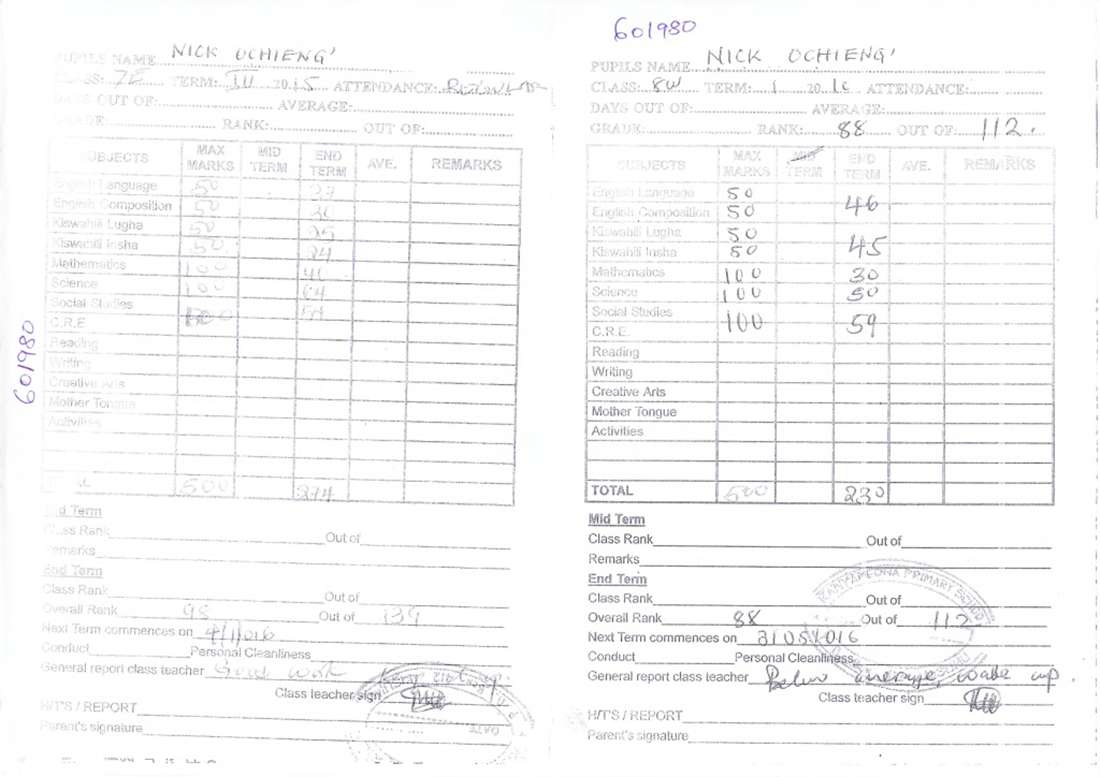 601980
PUPILS NAME NICK OCHIENG'
CLASS: 7E TERM: III 2015 ATTENDANCE:
DAYS OUT OF: AVERAGE:
GRADE RANK: OUT OF:
SUBJECTS MAX MARKS MID TERM END TERM AVE. REMARKS
English Language 50 27
English Composition 50
Kiswahili Lugha 50
Kiswahili Insha 50 24
Mathematics 100 40
Science 100 64
Social Studies
C.R.E 100
Reading
Writing
Creative Arts
Mother Tongue
Activities
TOTAL 500 274
Mid Term
Class Rank Out of
Remarks
End Term
Class Rank Out of
Overall Rank 98 Out of 139
Next Term commences on 4/1/016
Conduct Personal Cleanliness
General report class teacher Good work
Class teacher sign
H/T'S / REPORT
Parent's signature
DATE
601980
PUPILS NAME NICK OCHIENG'
CLASS: 8W TERM: 1 2016 ATTENDANCE:
DAYS OUT OF: AVERAGE:
GRADE: RANK: 88 OUT OF: 112.
SUBJECTS MAX MARKS MID TERM END TERM AVE. REMARKS
English Language 50
English Composition 50 46
Kiswahili Lugha 50
Kiswahili Insha 50 45
Mathematics 100 30
Science 100 50
Social Studies
C.R.E. 100 59
Reading
Writing
Creative Arts
Mother Tongue
Activities
TOTAL 500 230
Mid Term
Class Rank Out of
Remarks
End Term
Class Rank Out of
Overall Rank 88 Out of 112
Next Term commences on 3105/016
Conduct Personal Cleanliness
General report class teacher Below average, wake up
Class teacher sign
H/T'S / REPORT
Parent's signature
PRIMARY SCHOOL